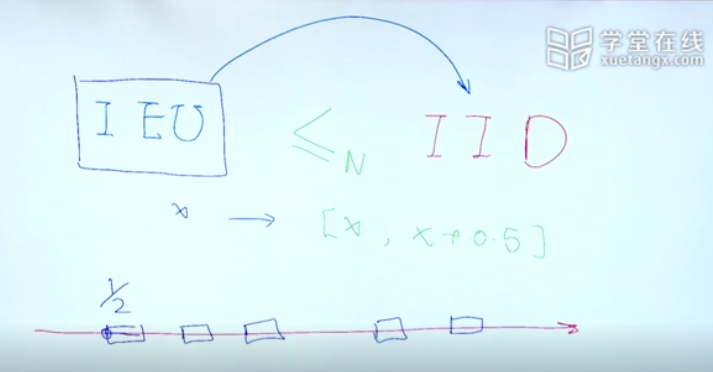 学堂在线
xuetangx.com
IEU ≤N IID
x → [x, x+0.5]
1/2